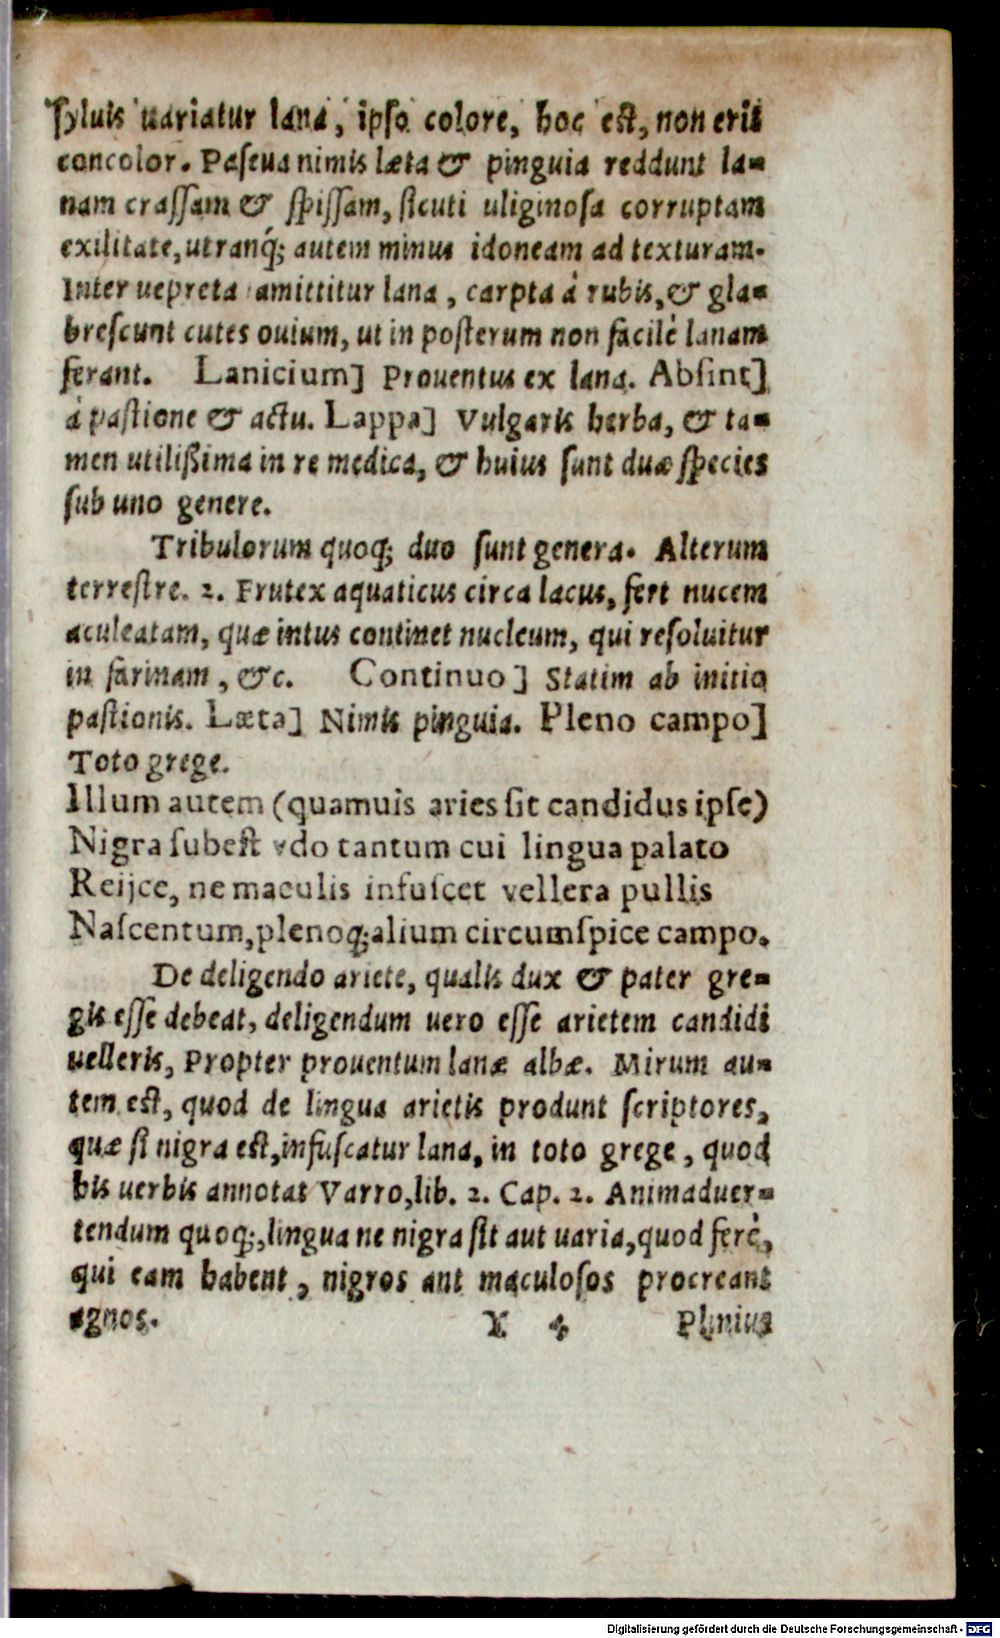 syluis uariatur lana, ipso colore, hoc est, non erit
concolor. Pascua nimis læta & pinguia reddunt la-
nam crassam & spissam, sicuti uliginosa corruptam
exilitate, utranq́; autem minus idoneam ad texturam.
Inter uepreta amittitur lana, carpta à rubis, & gla-
brescunt cutes ouium, ut in posterum non facilè lanam
ferant. Lanicium] Prouentus ex lana. Absint]
à pastione & actu. Lappa] Vulgaris herba, & ta-
men utilißima in re medica, & huius sunt duæ species
sub uno genere.
Tribulorum quoq; duo sunt genera. Alterum
terrestre. 2. Frutex aquaticus circa lacus, fert nucem
aculeatam, quæ intus continet nucleum, qui resoluitur
in farinam, &c. Continuo] Statim ab initio
pastionis. Læta] Nimis pinguia. Pleno campo]
Toto grege.
Illum autem (quamuis aries sit candidus ipse)
Nigra subest vdo tantum cui lingua palato
Reijce, ne maculis infuscet vellera pullis
Nascentum, plenoq; alium circumspice campo.
De deligendo ariete, qualis dux & pater gre-
gis esse debeat, deligendum uero esse arietem candidi
uelleris, Propter prouentum lanæ albæ. Mirum au-
tem est, quod de lingua arietis produnt scriptores,
quæ si nigra est, infuscatur lana, in toto grege, quod
his uerbis annotat Varro, lib. 2. Cap. 2. Animaduer-
tendum quoq;, lingua ne nigra sit aut uaria, quod ferè,
qui eam habent, nigros aut maculosos procreant
agnos. Y 4 Plinius
Digitalisierung gefördert durch die Deutsche Forschungsgemeinschaft - DFG